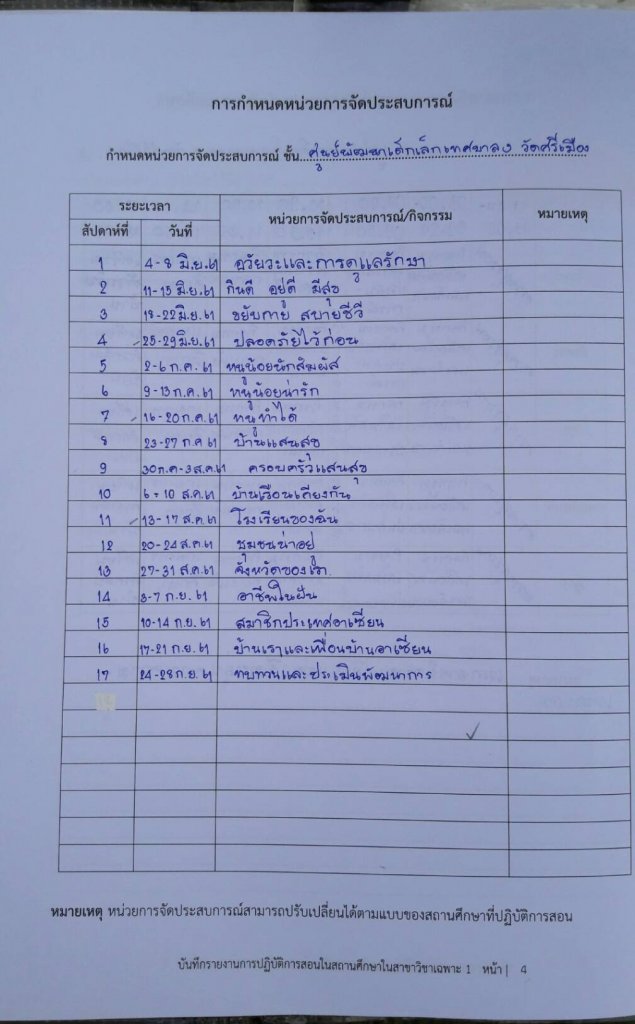 การกำหนดหน่วยการจัดประสบการณ์
กำหนดหน่วยการจัดประสบการณ์ ชั้น...ศูนย์พัฒนาเด็กเล็กเทศบาล ๑ วัดศรีเมือง
ระยะเวลา หน่วยการจัดประสบการณ์/กิจกรรม หมายเหตุ
สัปดาห์ที่ วันที่
1 4-8 มิ.ย.61 อวัยวะและการดูแลรักษา
2 11-15 มิ.ย.61 กินดี อยู่ดี มีสุข
3 18-22 มิ.ย.61 ขยับกาย สบายชีวี
4 25-29 มิ.ย.61 ปลอดภัยไว้ก่อน
5 2-6 ก.ค. 61 หนูน้อยนักสัมผัส
6 9-13 ก.ค.61 หนูน้อยน่ารัก
7 16-20 ก.ค.61 หนูทำได้
8 23-27 ก.ค 61 บ้านแสนสุข
9 30 ก.ค-3 ส.ค.61 ครอบครัวแสนสุข
10 6-10 ส.ค.61 บ้านเรือนเคียงกัน
11 13-17 ส.ค.61 โรงเรียนของฉัน
12 20-24 ส.ค.61 ชุมชนน่าอยู่
13 27-31 ส.ค.61 จังหวัดของเรา
14 3-7 ก.ย. 61 อาชีพในฝัน
15 10-14 ก.ย. 61 สมาชิกประเทศอาเซียน
16 17-21 ก.ย. 61 บ้านเราและเพื่อนบ้านอาเซียน
17 24-28 ก.ย. 61 ทบทวนและประเมินพัฒนาการ
หมายเหตุ หน่วยการจัดประสบการณ์สามารถปรับเปลี่ยนได้ตามแบบของสถานศึกษาที่ปฏิบัติการสอน
บันทึกรายงานการปฏิบัติการสอนในสถานศึกษาในสาขาวิชาเฉพาะ 1 หน้า | 4